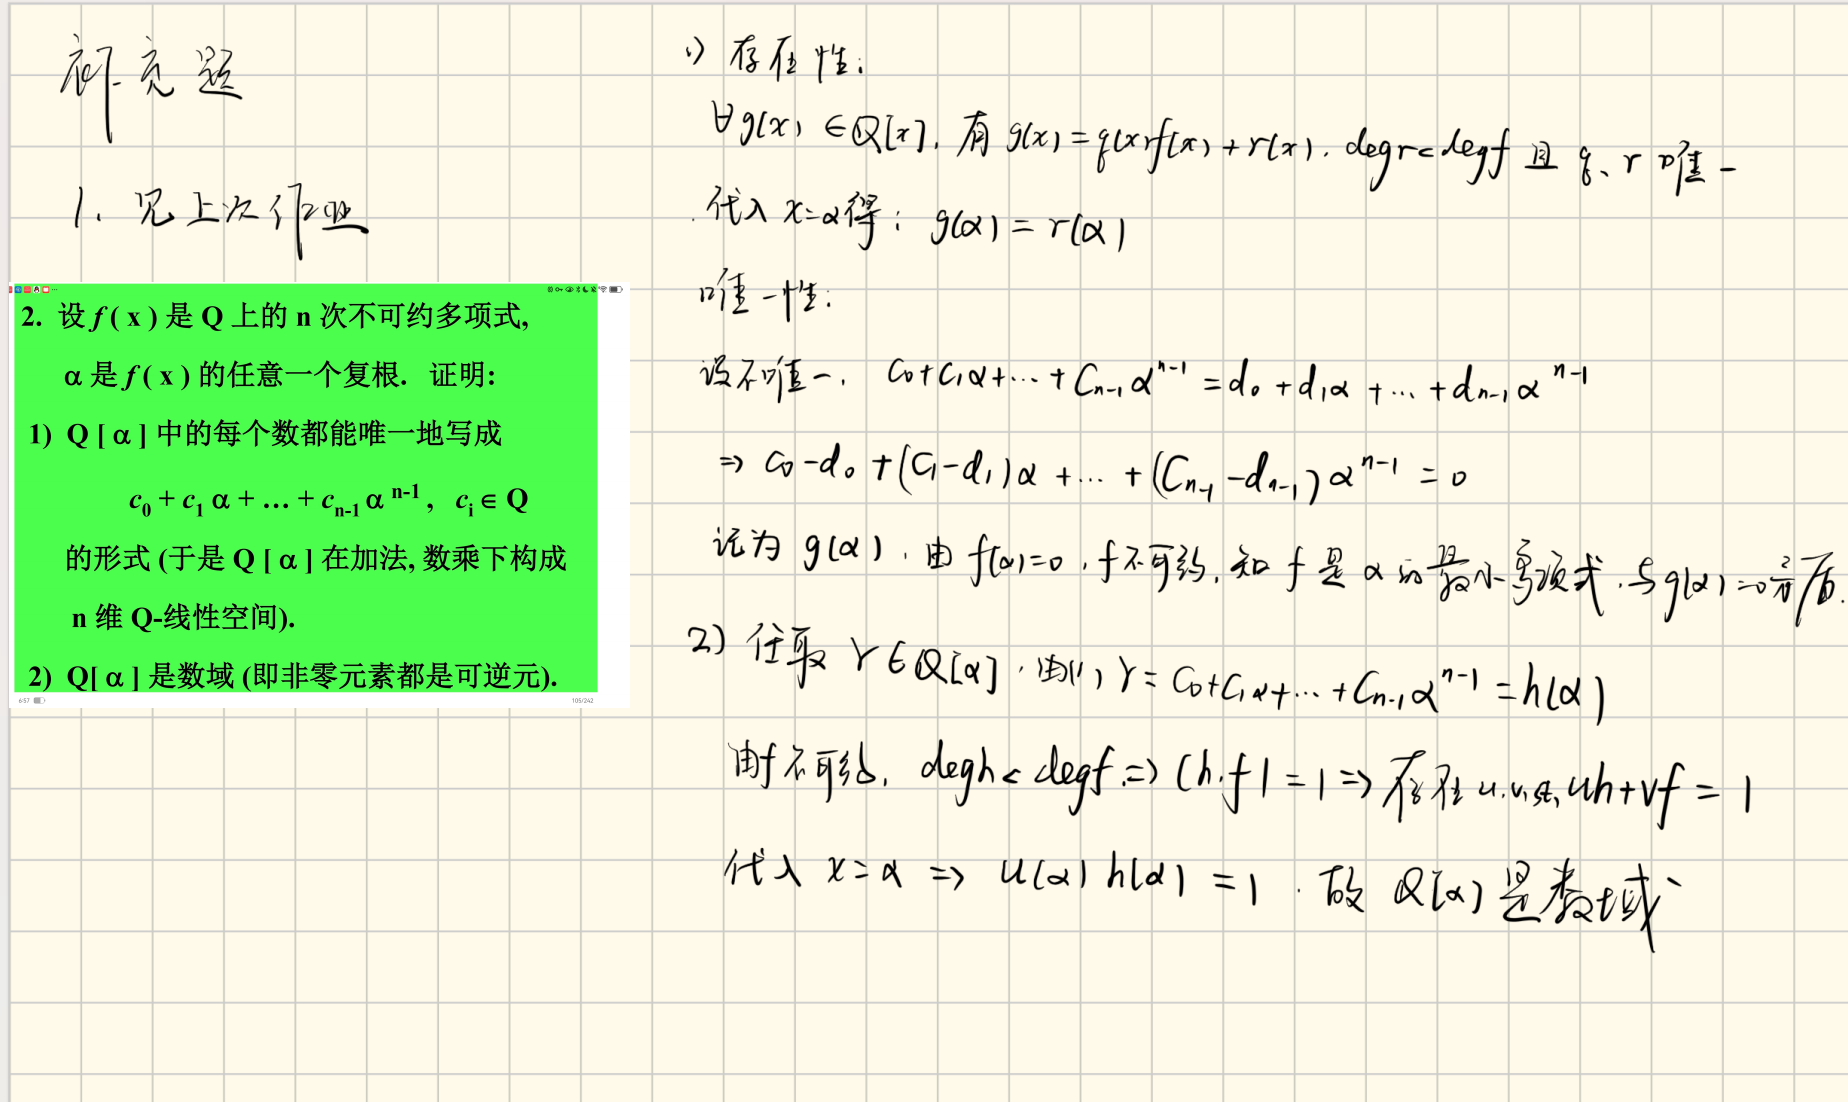 补充题
1. 见上次作业
2. 设 f ( x ) 是 Q 上的 n 次不可约多项式,
α 是 f ( x ) 的任意一个复根. 证明:
1) Q [ α ] 中的每个数都能唯一地写成
c₀ + c₁ α + … + cₙ₋₁ α ⁿ⁻¹ , cᵢ ∈ Q
的形式 (于是 Q [ α ] 在加法, 数乘下构成
n 维 Q-线性空间).
2) Q[ α ] 是数域 (即非零元素都是可逆元).
6:57
105/242
1) 存在性:
∀g(x) ∈Q[x], 有 g(x)=q(x)f(x)+r(x), degr<degf 且 q、r 唯一
代入 x=α得: g(α) = r(α)
唯一性:
设不唯一, c₀+c₁α+…+cₙ₋₁αⁿ⁻¹ = d₀+d₁α+…+dₙ₋₁αⁿ⁻¹
⇒ c₀-d₀+(c₁-d₁)α+…+(cₙ₋₁-dₙ₋₁)αⁿ⁻¹ = 0
记为 g(α), 由 f(α)=0, f不可约, 知 f 是 α 的最小多项式, 与g(α)=0矛盾.
2) 任取 γ∈Q[α], 由(1) γ= c₀+c₁α+…+cₙ₋₁αⁿ⁻¹ =h(α)
由f不可约, degh<degf ⇒ (h,f)=1 ⇒ 存在 u,v,st, uh+vf = 1
代入 x=α ⇒ u(α) h(α) = 1. 故 Q[α] 是数域